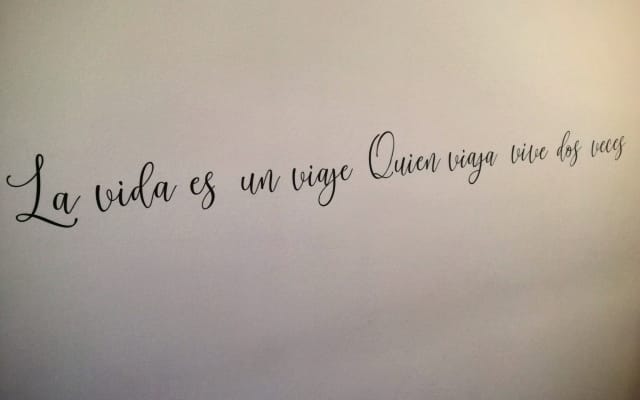 La vida es un viaje Quien viaja vive dos veces